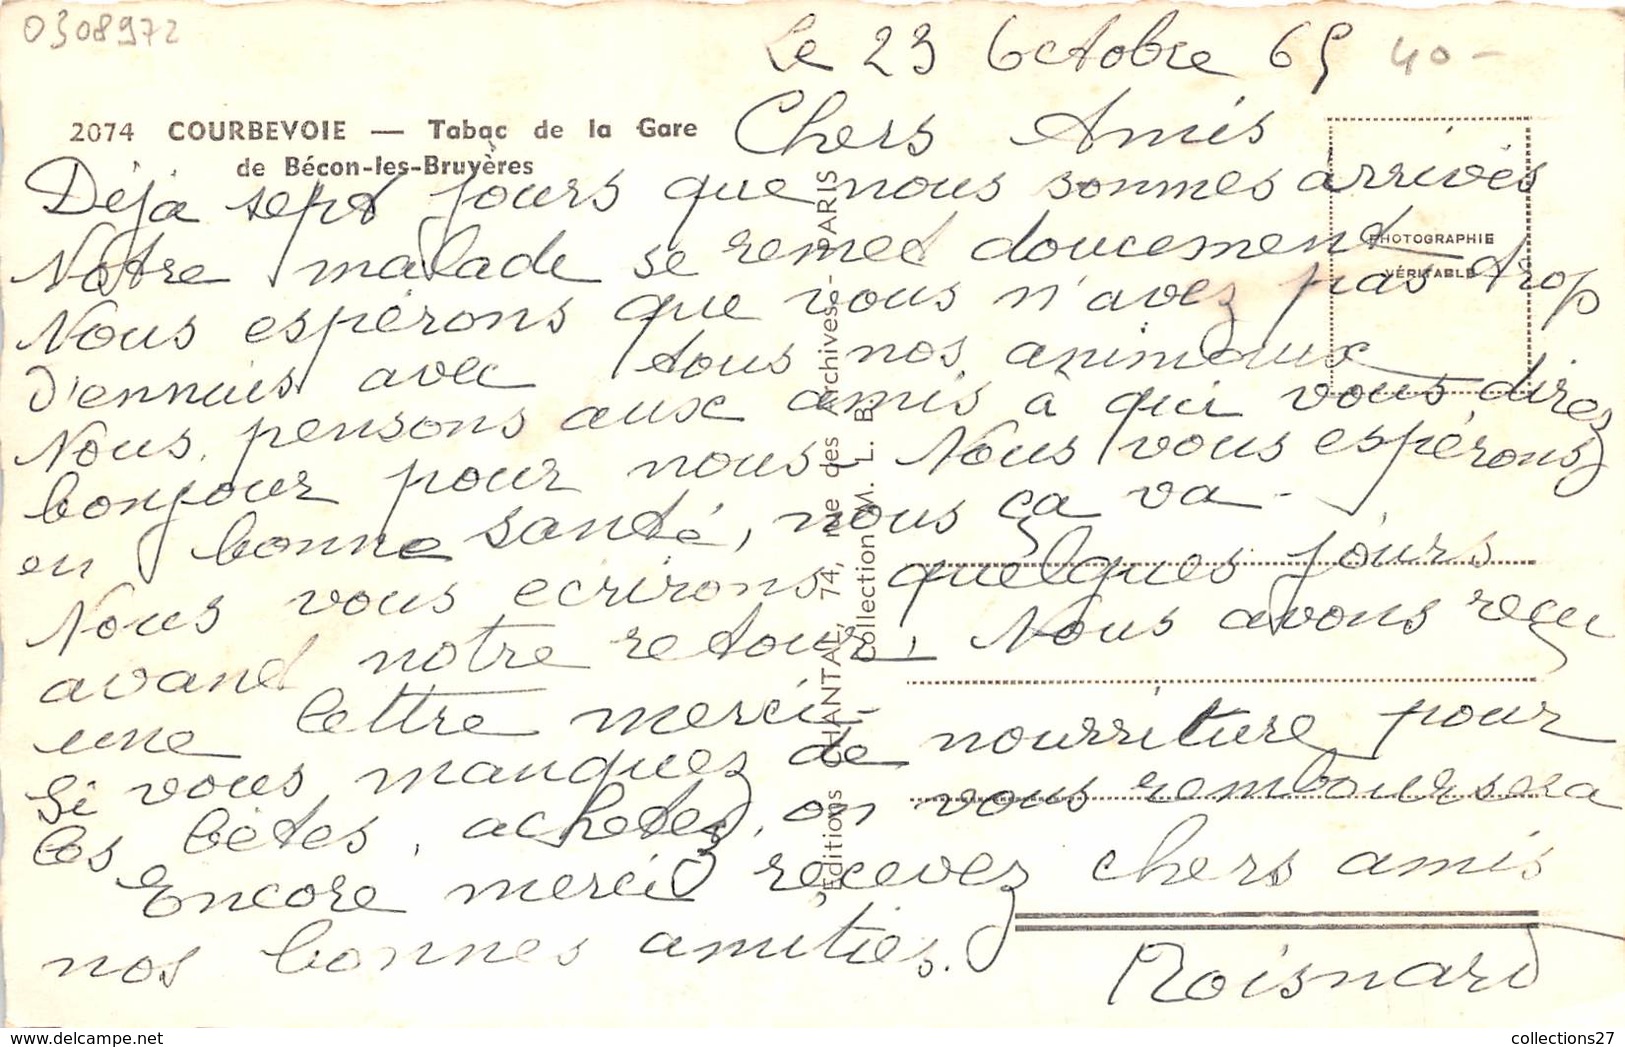 0308972
Le 23 Octobre 65
40-
2074 COURBEVOIE — Tabac de la Gare
de Bécon-les-Bruyères
Chers Amis
Déja sept jours que nous sommes arrivés
Notre malade se remet doucement
Nous espérons que vous n'avez pas trop
d'ennuis avec tous nos animaux
Nous pensons aux amis à qui vous direz
bonjour pour nous. Nous vous espérons
en bonne santé, nous ça va -
Nous vous ecrirons quelques jours
avant notre retour, Nous avons reçu
une lettre merci -
Si vous manquez de nourriture pour
les bêtes, achetez, on vous remboursera
Encore merci recevez chers amis
nos bonnes amitiés.
Moisnard
PHOTOGRAPHIE
VÉRITABLE
Editions CHANTAL, 74, rue des Archives - PARIS
Collection M. L. B.
collections27